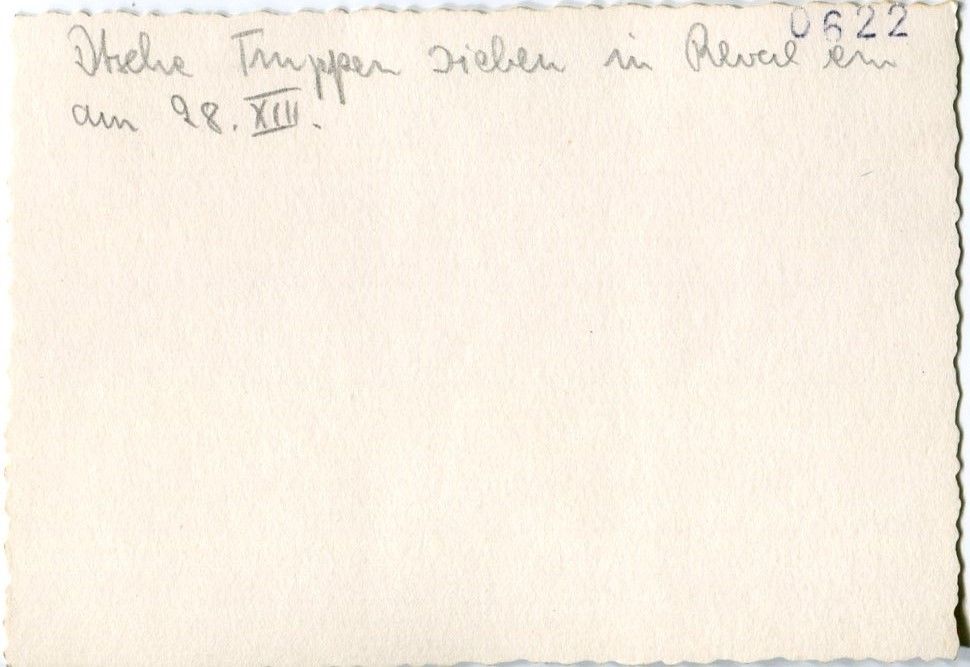 0622
Dtsche Truppen ziehen in Reval ein
am 28. XIII.